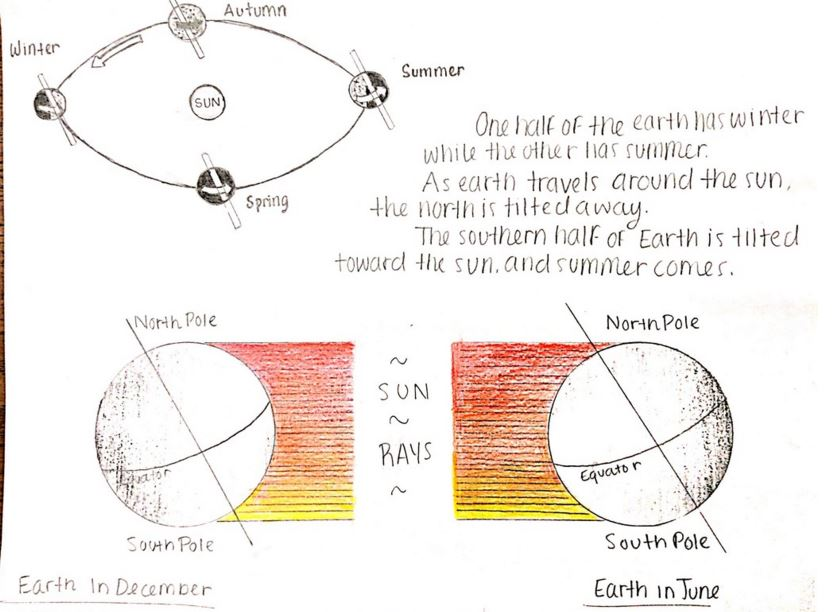 Autumn
Winter
Summer
SUN
Spring
One half of the earth has winter
while the other has summer.
As earth travels around the sun,
the north is tilted away.
The southern half of Earth is tilted
toward the sun, and summer comes.
North Pole
North Pole
~
SUN
~
RAYS
~
Equator
Equator
South Pole
South Pole
Earth In December
Earth in June